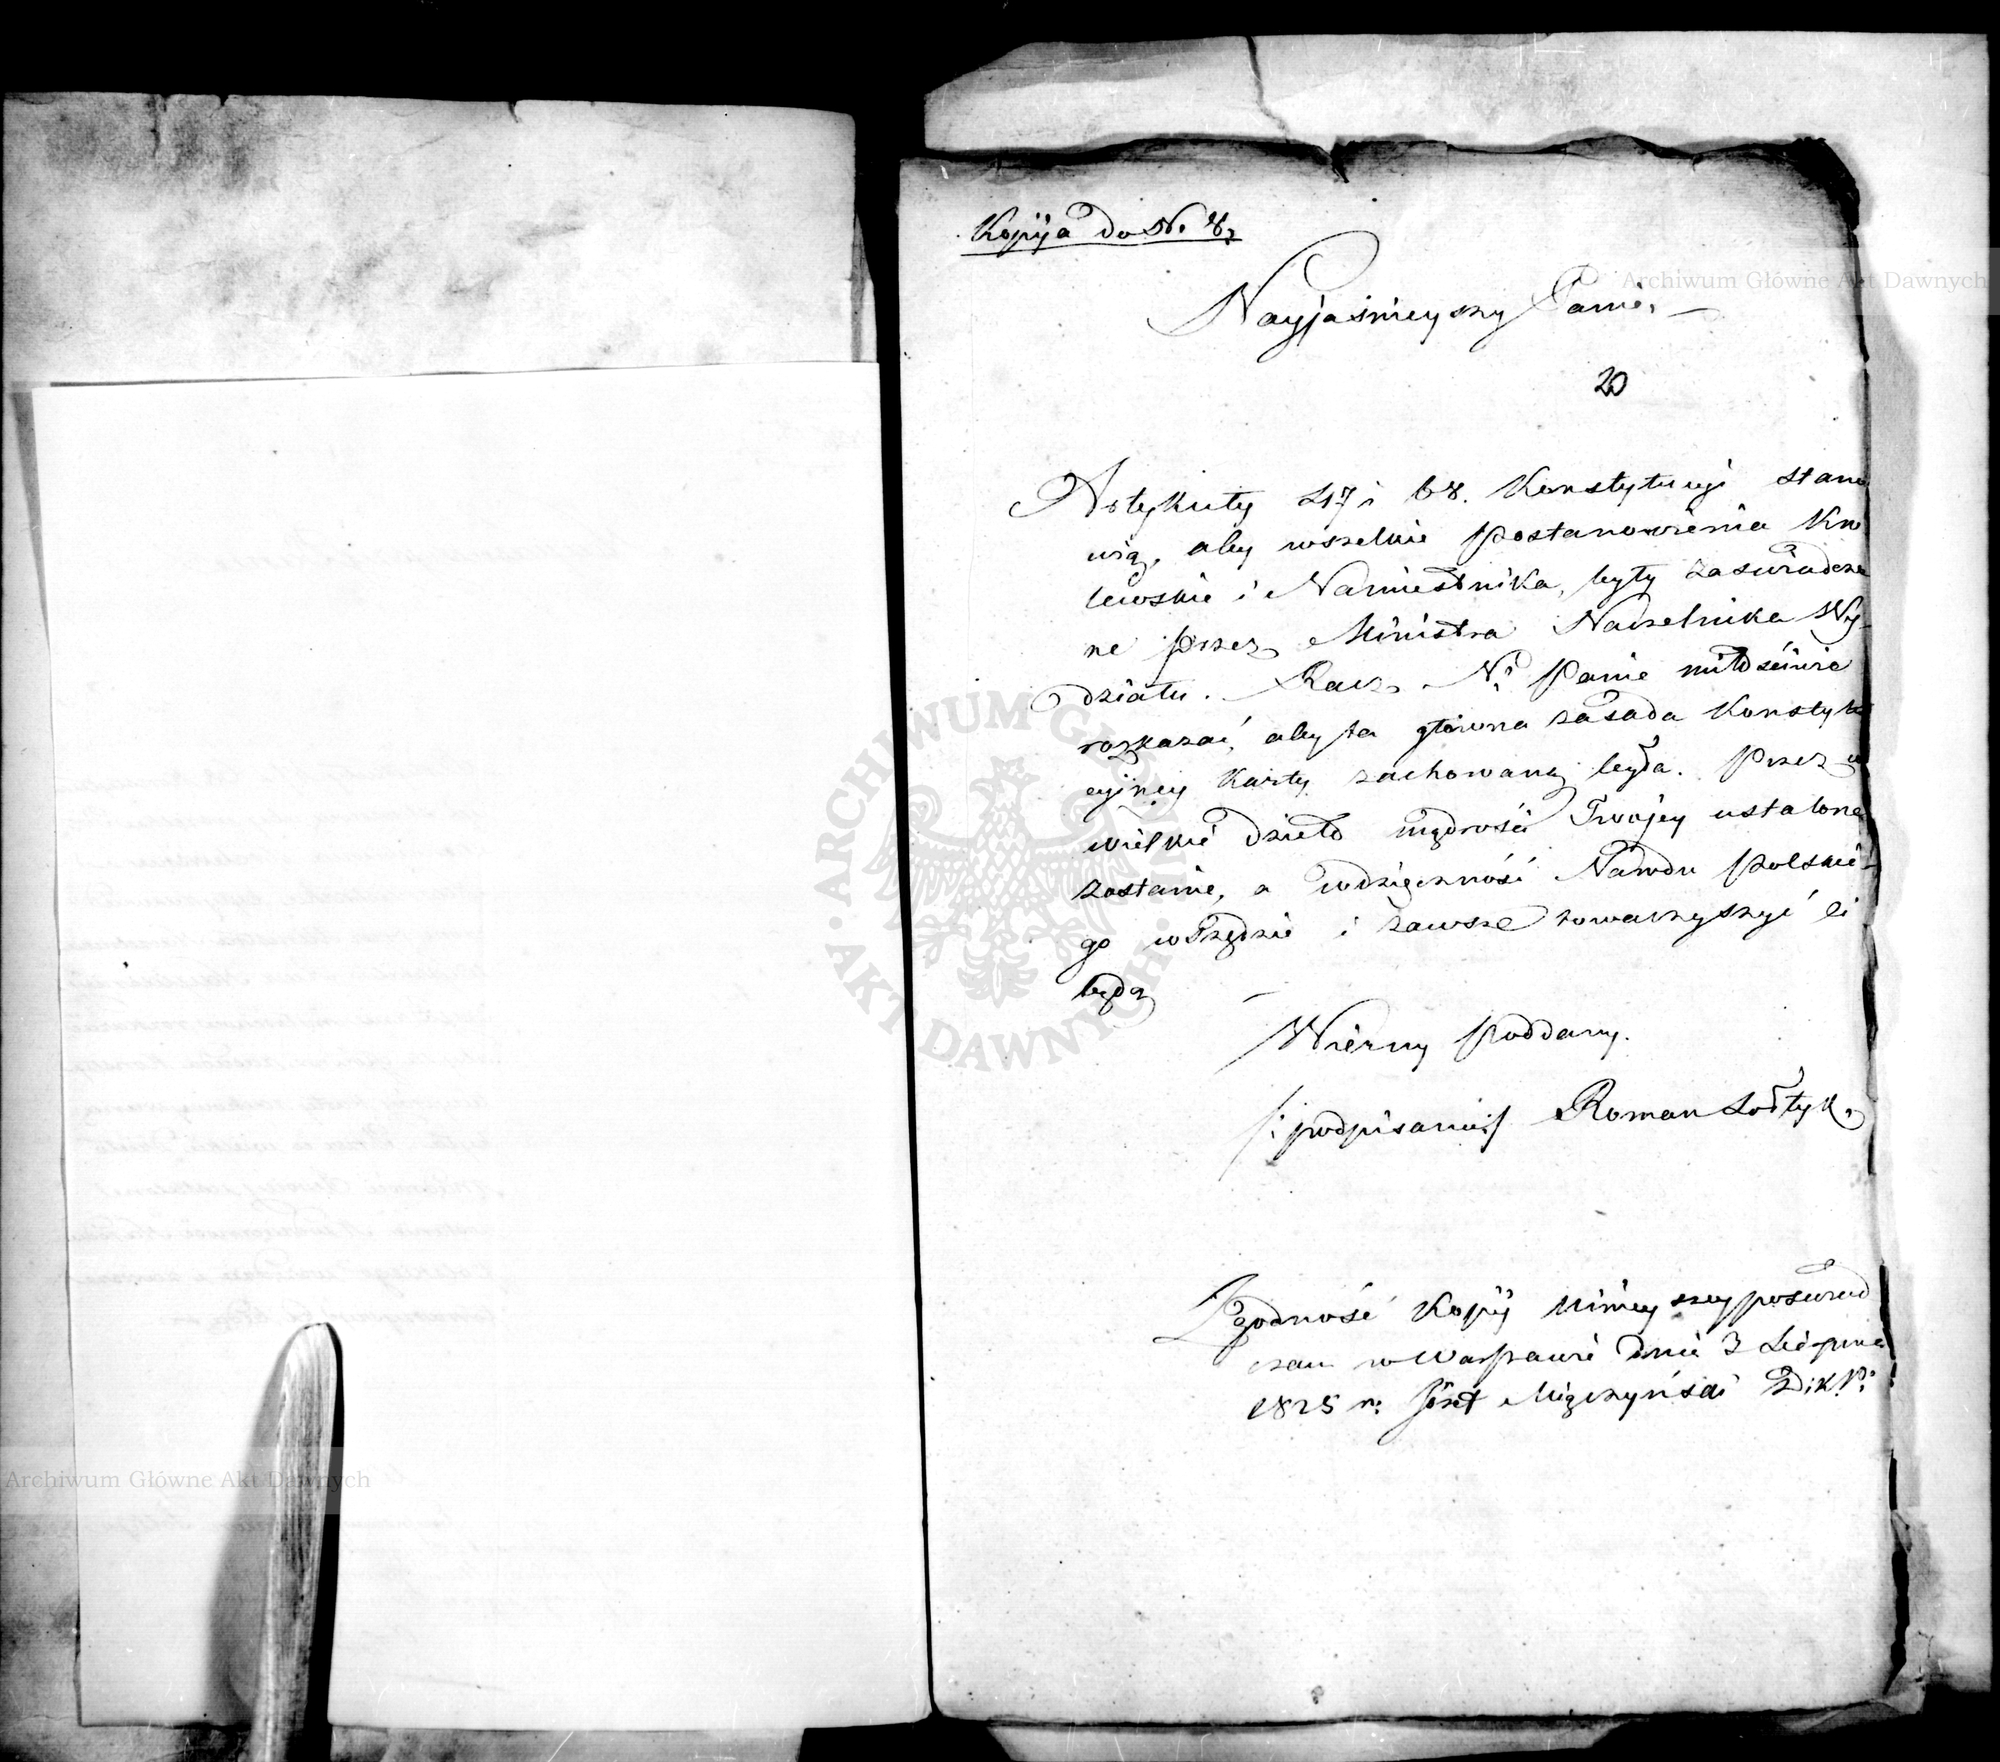 Kopija do No 8.
Nayjaśnieyszy Panie,
20
Artykuły 47 i 68. Konstytucyi stano
wią, aby wszelkie postanowienia Kró
lewskie i Namiestnika, były zaświadczo
ne przez Ministra Naczelnika Wy-
działu. Racz N. Panie miłościwie
rozkazać, aby ta główna zasada Konstytu
cyjney Karty zachowaną była. Przez co
wielkie dzieło mądrości Twojey ustalone
zostanie, a wdzięczność Narodu Polskie-
go wszędzie i zawsze towarzyszyć ci
będą
Wierny Poddany.
/: podpisano :/ Roman Sołtyk.
Zgodność Kopij ninieyszey poświad
czam w Warszawie dnia 3 Sierpnia
1825 r: Józef Mięczyński
ARCHIWUM GŁÓWNE · AKT DAWNYCH ·
Archiwum Główne Akt Dawnych
Archiwum Główne Akt Dawnych